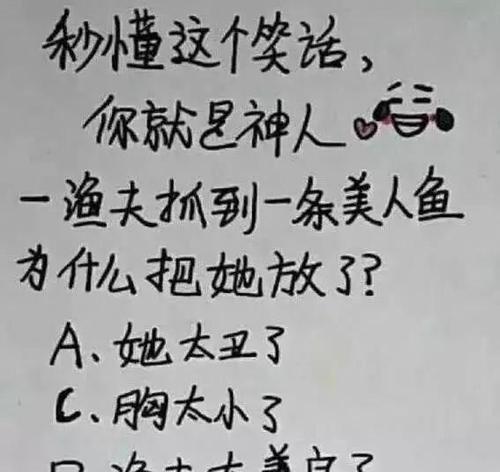 秒懂这个笑话，
你就是神人
一渔夫抓到一条美人鱼
为什么把她放了？
A、她太丑了
C、胸太小了